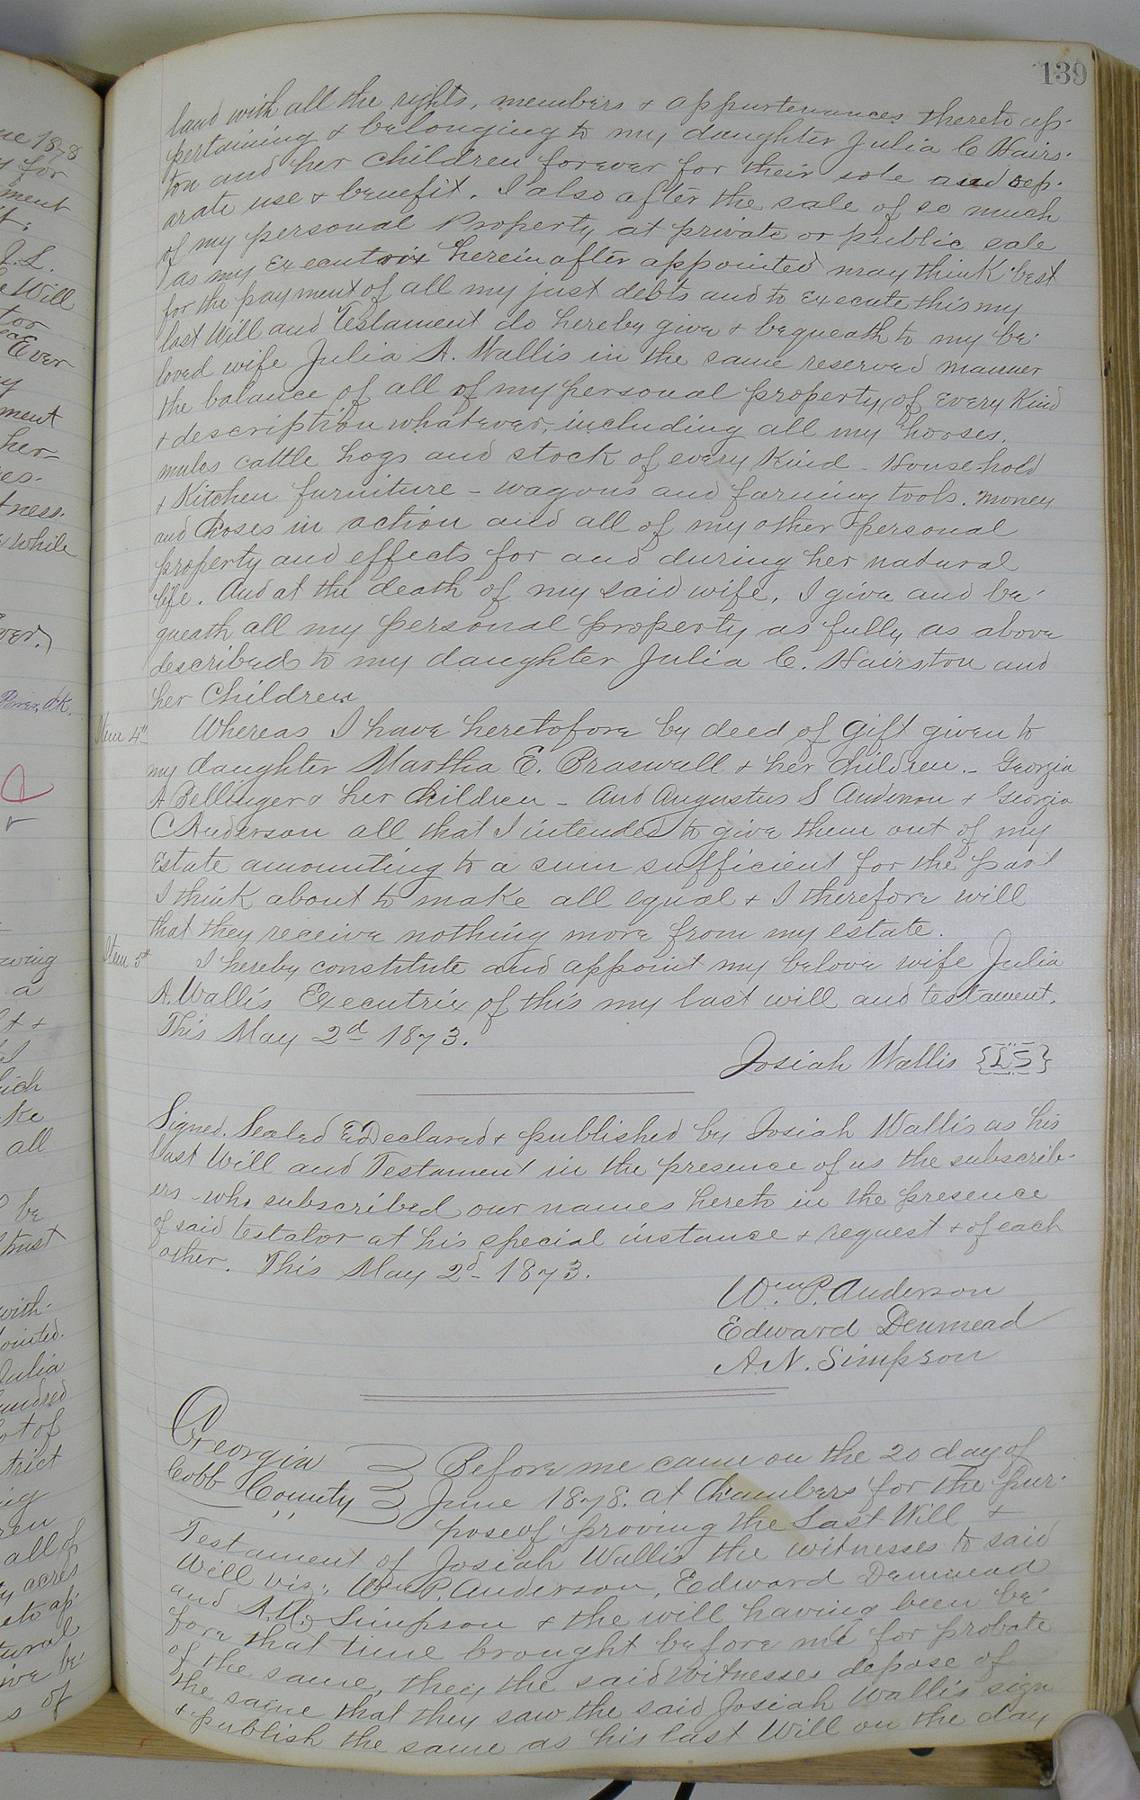 139
land with all the rights, members & appurtenances thereto ap-
pertaining & belonging to my daughter Julia C Hairs-
ton and her children forever for their sole and sep-
arate use & benefit. I also after the sale of so much
of my personal Property at private or public sale
as my Executrix hereinafter appointed may think best
for the payment of all my just debts and to Execute this my
last Will and Testament do hereby give & bequeath to my be-
loved wife Julia A. Wallis in the same reserved manner
the balance of all of my personal property, of Every Kind
& description whatever, including all my horses.
mules cattle hogs and stock of every Kind - Household
& Kitchen furniture - wagons and farming tools. money
and Choses in action and all of my other personal
property and effects for and during her natural
life. And at the death of my said wife, I give and be-
queath all my personal property as fully as above
described to my daughter Julia C. Hairston and
her Children
Item 4th Whereas I have heretofore by deed of Gift given to
my daughter Martha E. Braswell & her Children - Georgia
A Bellinger & her Children - And Augustus S Anderson & Georgia
C Anderson all that I intended to give them out of my
Estate amounting to a sum sufficient for the part
I think about to make all equal & I therefore will
that they receive nothing more from my estate.
Item 5th I hereby constitute and appoint my belove wife Julia
A. Wallis Executrix of this my last will and testament.
This May 2d 1873.
Josiah Wallis {LS}
Signed. Sealed & Declared & published by Josiah Wallis as his
last Will and Testament in the presence of us the subscrib-
ers who subscribed our names hereto in the presence
of said testator at his special instance & request & of each
other. This May 2d 1873.
Wm P. Anderson
Edward Denmead
A. N. Simpson
Georgia
Cobb County
Before me came on the 20 day of
June 1878. at Chambers for the pur-
pose of proving the Last Will &
Testament of Josiah Wallis the witnesses to said
Will vis; Wm P. Anderson, Edward Denmead
and A. N. Simpson & the will having been be-
fore that time brought before me for probate
of the same, they the said Witnesses depose of
the same that they saw the said Josiah Wallis sign
& publish the same as his last Will on the day